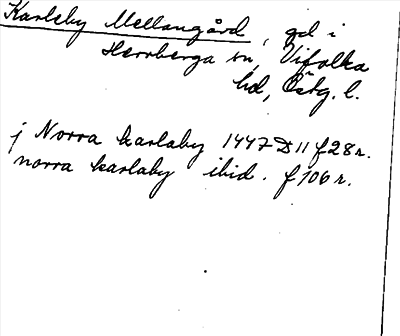 Karleby Mellangård, gd i
Herrberga sn, Vifolka
hd, Östg. l.
j Norra karlaby 1447 D 11 f 28 r.
norra karlaby ibid. f 106 r.